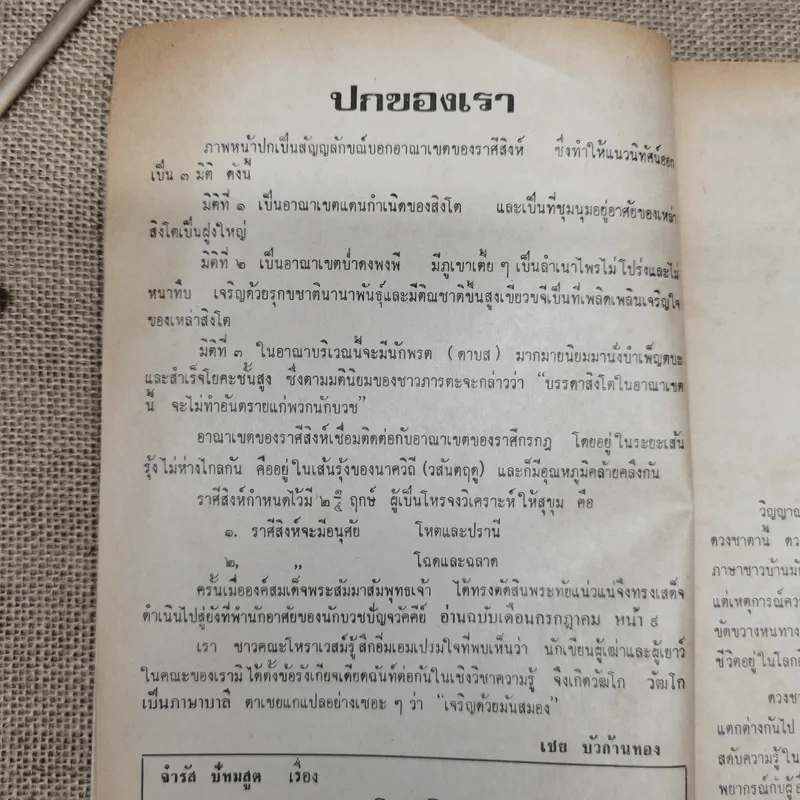 ปกของเรา
ภาพหน้าปกเป็นสัญญลักขณ์บอกอาณาเขตของราศีสิงห์ ซึ่งทำให้แนวนิทัศน์ออก
เป็น ๓ มิติ ดังนี้
มิติที่ ๑ เป็นอาณาเขตแดนกำเนิดของสิงโต และเป็นที่ชุมนุมอยู่อาศัยของเหล่า
สิงโตเป็นฝูงใหญ่
มิติที่ ๒ เป็นอาณาเขตป่าดงพงพี มีภูเขาเตี้ย ๆ เป็นลำเนาไพรไม่โปร่งและไม่
หนาทึบ เจริญด้วยรุกขชาตินานาพันธุ์และมีติณชาติขึ้นสูงเขียวขจีเป็นที่เพลิดเพลินเจริญใจ
ของเหล่าสิงโต
มิติที่ ๓ ในอาณาบริเวณนี้จะมีนักพรต (ดาบส) มากมายนิยมมานั่งบำเพ็ญตบะ
และสำเร็จโยคะชั้นสูง ซึ่งตามมตินิยมของชาวภารตะจะกล่าวว่า “บรรดาสิงโตในอาณาเขต
นี้ จะไม่ทำอันตรายแก่พวกนักบวช”
อาณาเขตของราศีสิงห์เชื่อมติดต่อกับอาณาเขตของราศีกรกฎ โดยอยู่ในระยะเส้น
รุ้งไม่ห่างไกลกัน คืออยู่ในเส้นรุ้งของนาควิถี (วสันตฤดู) และก็มีอุณหภูมิคล้ายคลึงกัน
ราศีสิงห์กำหนดไว้มี ๒ ๑/๔ ฤกษ์ ผู้เป็นโหรจงวิเคราะห์ให้สุขุม คือ
๑. ราศีสิงห์จะมีอนุศัย โหตและปรานี
๒, ,, โฉดและฉลาด
ครั้นเมื่อองค์สมเด็จพระสัมมาสัมพุทธเจ้า ได้ทรงตัดสินพระทัยแน่วแน่จึงทรงเสด็จ
ดำเนินไปสู่ยังที่พำนักอาศัยของนักบวชปัญจวัคคีย์ อ่านฉบับเดือนกรกฎาคม หน้า ๙
เรา ชาวคณะโหราเวสม์รู้สึกอิ่มเอมเปรมใจที่พบเห็นว่า นักเขียนผู้เฒ่าและผู้เยาว์
ในคณะของเรามิได้ตั้งข้อรังเกียจเดียดฉันท์ต่อกันในเชิงวิชาความรู้ จึงเกิดวัฒโก วัฒโก
เป็นภาษาบาลี ตาเชยแกแปลอย่างเชอะ ๆ ว่า “เจริญด้วยมันสมอง”
เชย บัวก้านทอง
จำรัส ปัทมสูต เรื่อง
วิญญาณ
ดวงชาตานี้
ภาษาชาวบ้าน
แต่เหตุการณ์
ขัดขวางหนทาง
ชีวิตอยู่ในโลก
ดวงชา
แตกต่างกันไป
สดับความรู้ใน
พยากรณ์กับผู้